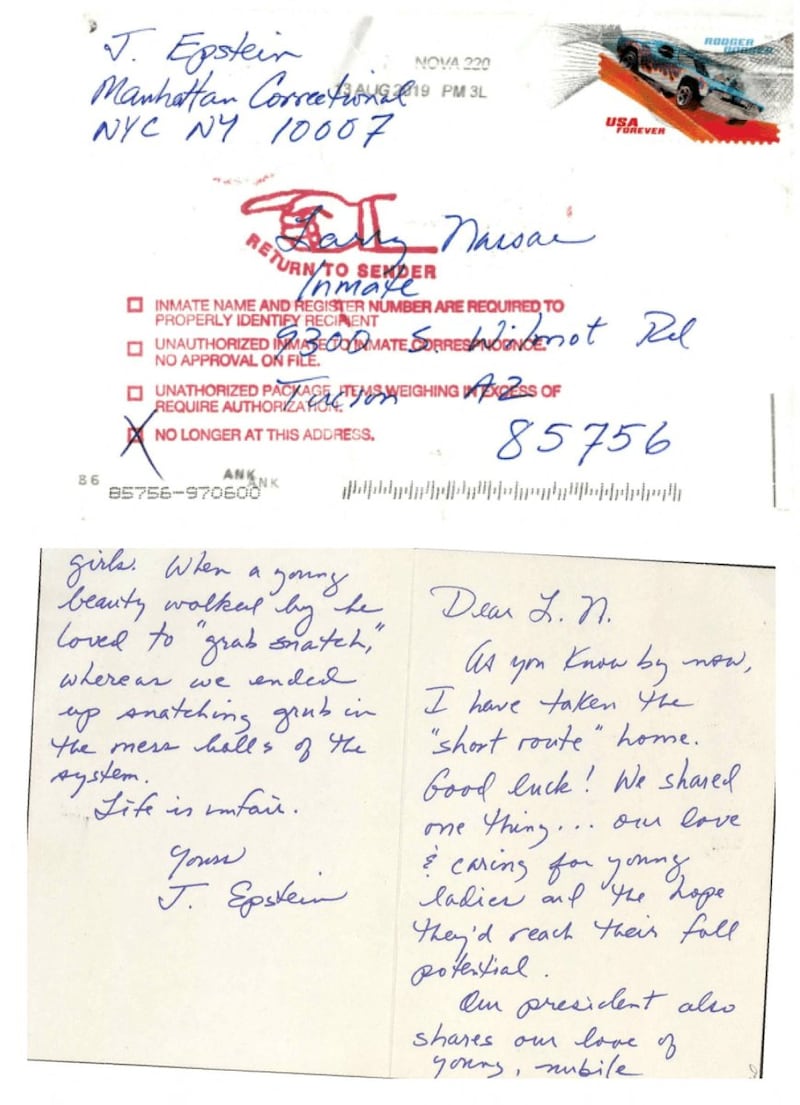 J. Epstein
Manhattan Correctional
NYC NY 10007
NOVA 220
13 AUG 2019 PM 3L
RODGER
USA
FOREVER
Larry Nassar
RETURN TO SENDER
Inmate
☐ INMATE NAME AND REGISTER NUMBER ARE REQUIRED TO
PROPERLY IDENTIFY RECIPIENT
9300 S. Wilmot Rd
☐ UNAUTHORIZED INMATE TO INMATE CORRESPONDENCE.
NO APPROVAL ON FILE.
☐ UNATHORIZED PACKAGE, ITEMS WEIGHING IN EXCESS OF
REQUIRE AUTHORIZATION.
Tucson AZ
☒ NO LONGER AT THIS ADDRESS.
85756
86
ANK
ANK
85756-970600
Dear L. N.
As you know by now,
I have taken the
"short route" home.
Good luck! We shared
one thing... our love
& caring for young
ladies and the hope
they'd reach their full
potential.
Our president also
shares our love of
young, nubile
girls. When a young
beauty walked by he
loved to "grab snatch,"
whereas we ended
up snatching grub in
the mess halls of the
system.
Life is unfair.
Yours
J. Epstein